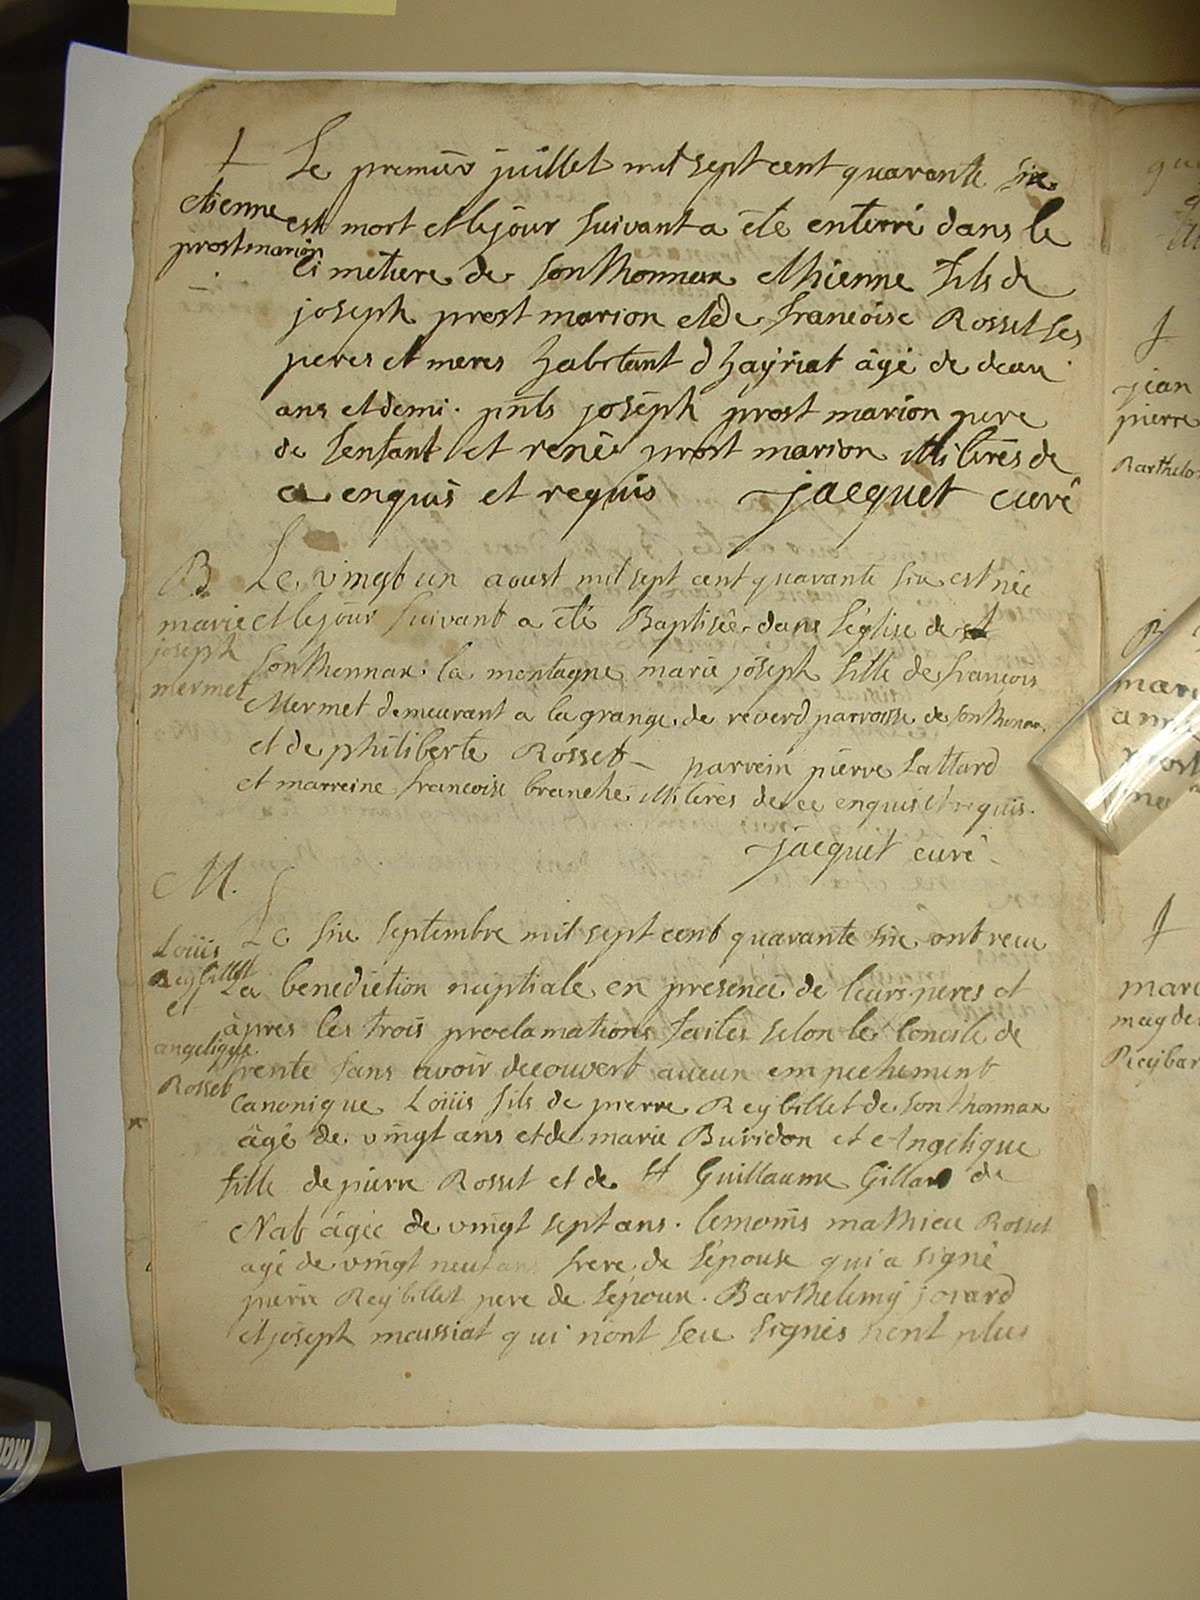 Le premier juillet mil sept cent quarante six
etienne
prost marion
est mort et le jour suivant a ete enterré dans le
cimetiere de sonthonnax ethienne fils de
joseph prost marion et de francoise Rosset ses
peres et meres habitant d hayriat âgé de deux
ans et demi . pnts joseph prost marion pere
de lenfant et renè prost marion illiterés de
ce enquis et requis jacquet curé
B
marie
joseph
mermet
Le vingt un aoust mil sept cent quarante six est née
et le jour suivant a eté Baptisée dans l'église de
sonthonnax la montagne marie joseph fille de francois
Mermet demeurant a la grange de reverd parroisse de sonthonax
et de philiberte Rosset parrein pierre
et marreine francoise branche illiterés de ce enquis et requis .
jacquet curé
M.
Loüis
Reybillet
et
angelique
Rosset
Le six septembre mil sept cent quarante six ont recu
La benediction nuptiale en presence de leurs peres et
âpres les trois proclamations faites selon le concile de
trente sans avoir decouvert aucun empechement
canonique Loüis fils de pierre Reybillet de sonthonnax
âgé de vingt ans et de marie Buridon et Angelique
fille de pierre Rosset et de Guillaume Gillard de
Nat âgée de vingt sept ans . temoins mathieu Rosset
agé de vingt neuf ans frere de l'épouse qui a signé
pierre Reybillet pere de l'époux . Barthelemy jorard
et joseph moussiat qui n'ont seu signés nont plus
jean
pierre
Barthelo
B
mari
ann
marc
magde
Reybar